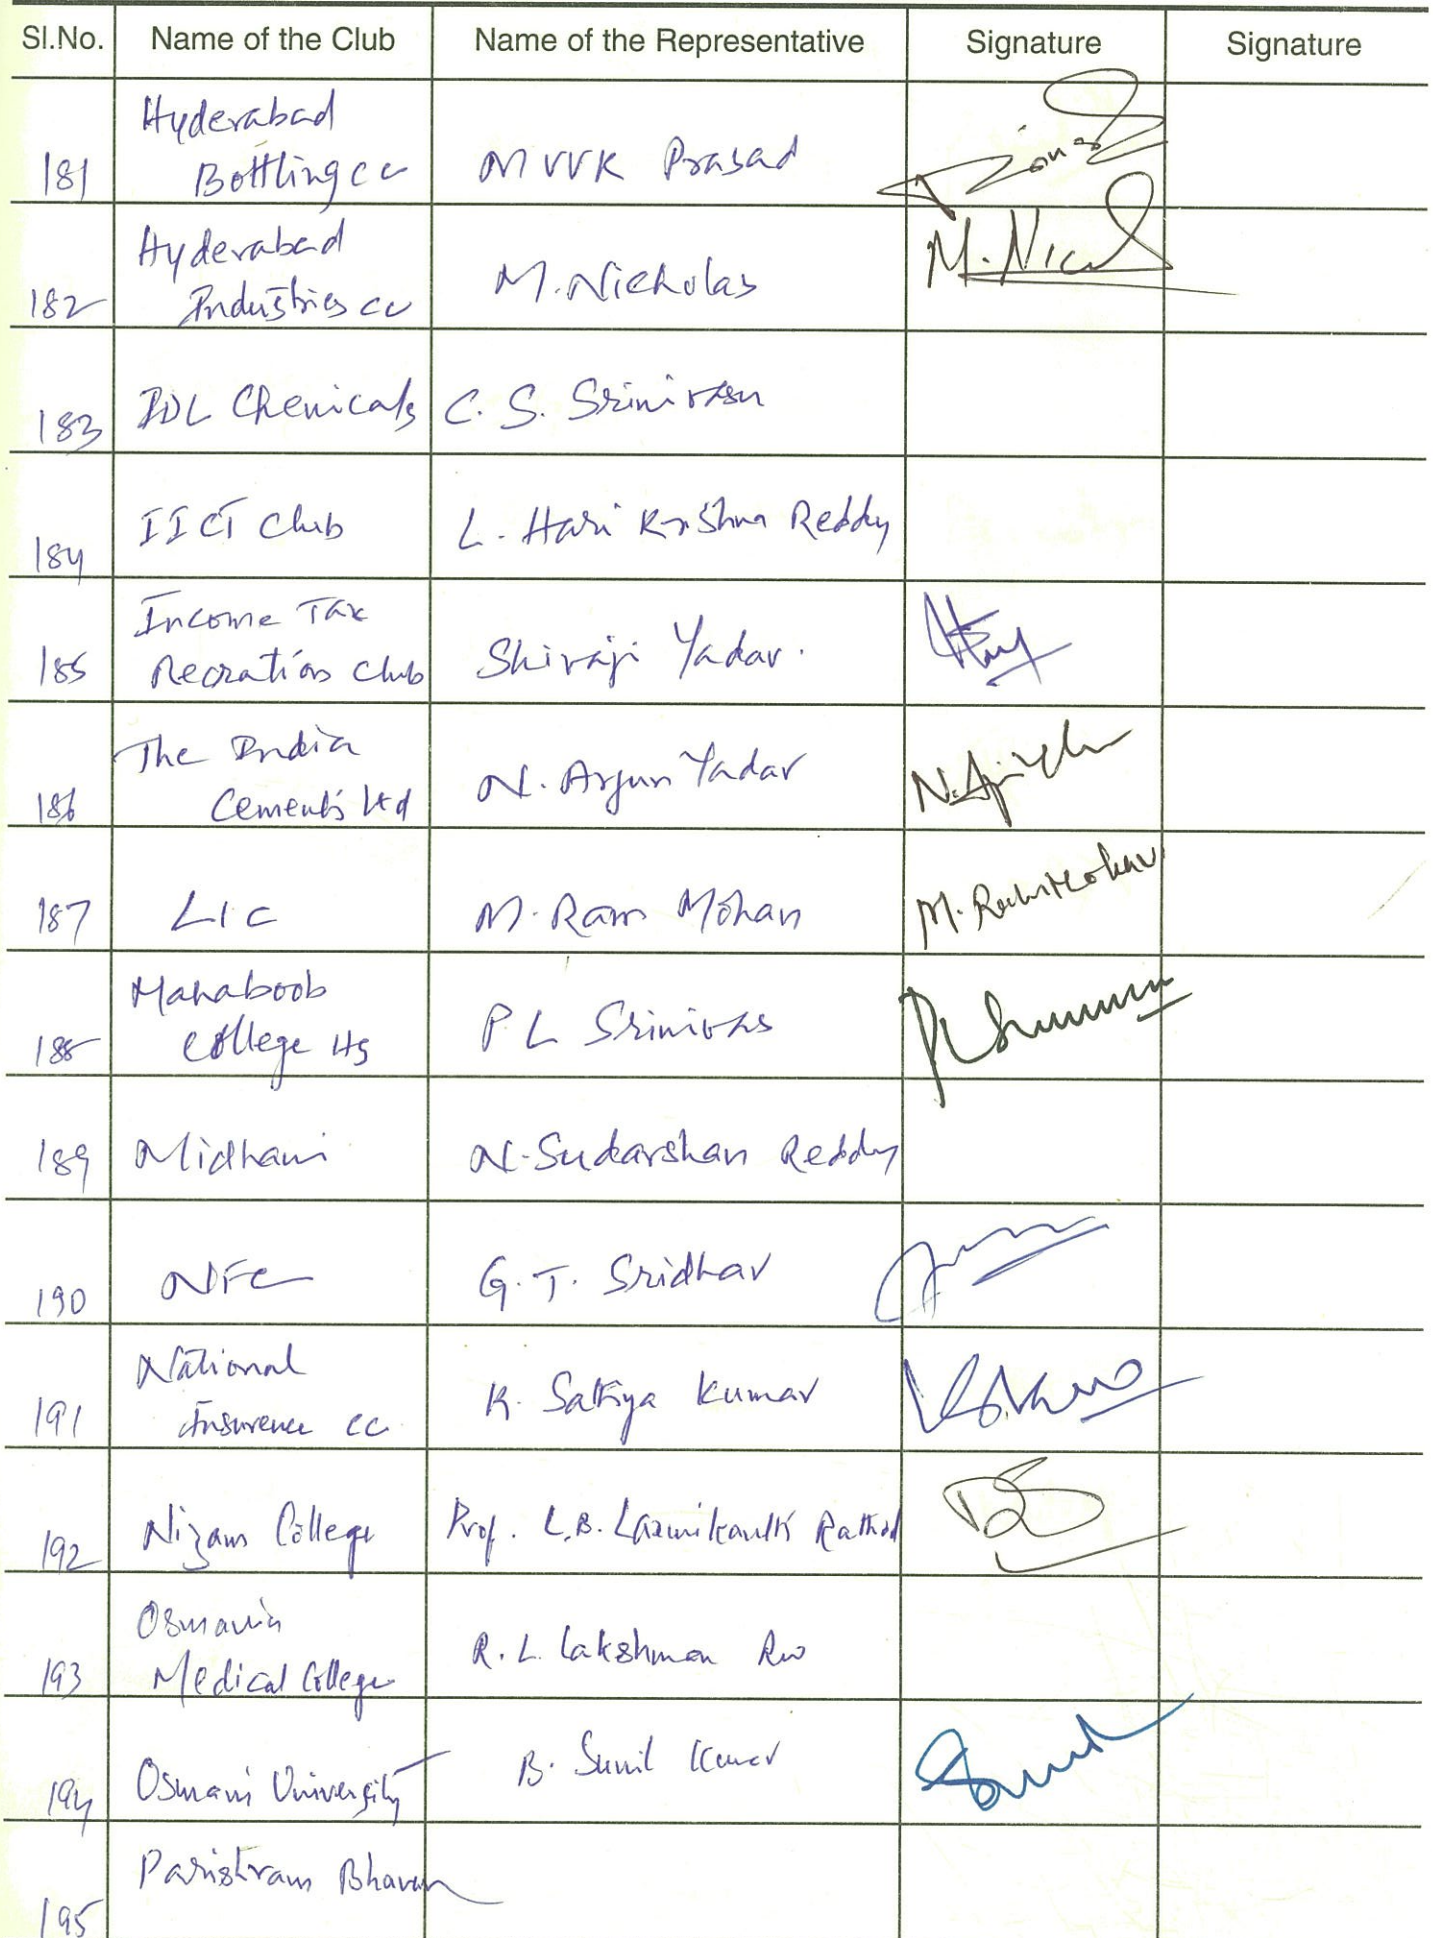 Sl.No. Name of the Club Name of the Representative Signature Signature
Hyderabad
181 Bottling cc MVVK Prasad
Hyderabad M. Nicol
182 Industries cc M. Nicholas
183 IDL Chemicals C. S. Srinivasu
184 IICT Club L. Hari Krishna Reddy
Income Tax
185 Recration Club Shivaji Yadav.
The India
186 Cements Ltd N. Arjun Yadav
187 LIC M. Ram Mohan
Mahaboob
188 College HS P L Srinivas
189 Midhani N. Sudarshan Reddy
190 NFC G. T. Sridhar
National
191 Insurence cc K. Sathya Kumar
192 Nizam College Prof. L.B. Laxmikanth Rathod
Osmania
193 Medical College R. L. Lakshman Rao
194 Osmani University B. Sunil Kumar
Parishram Bhavan
195